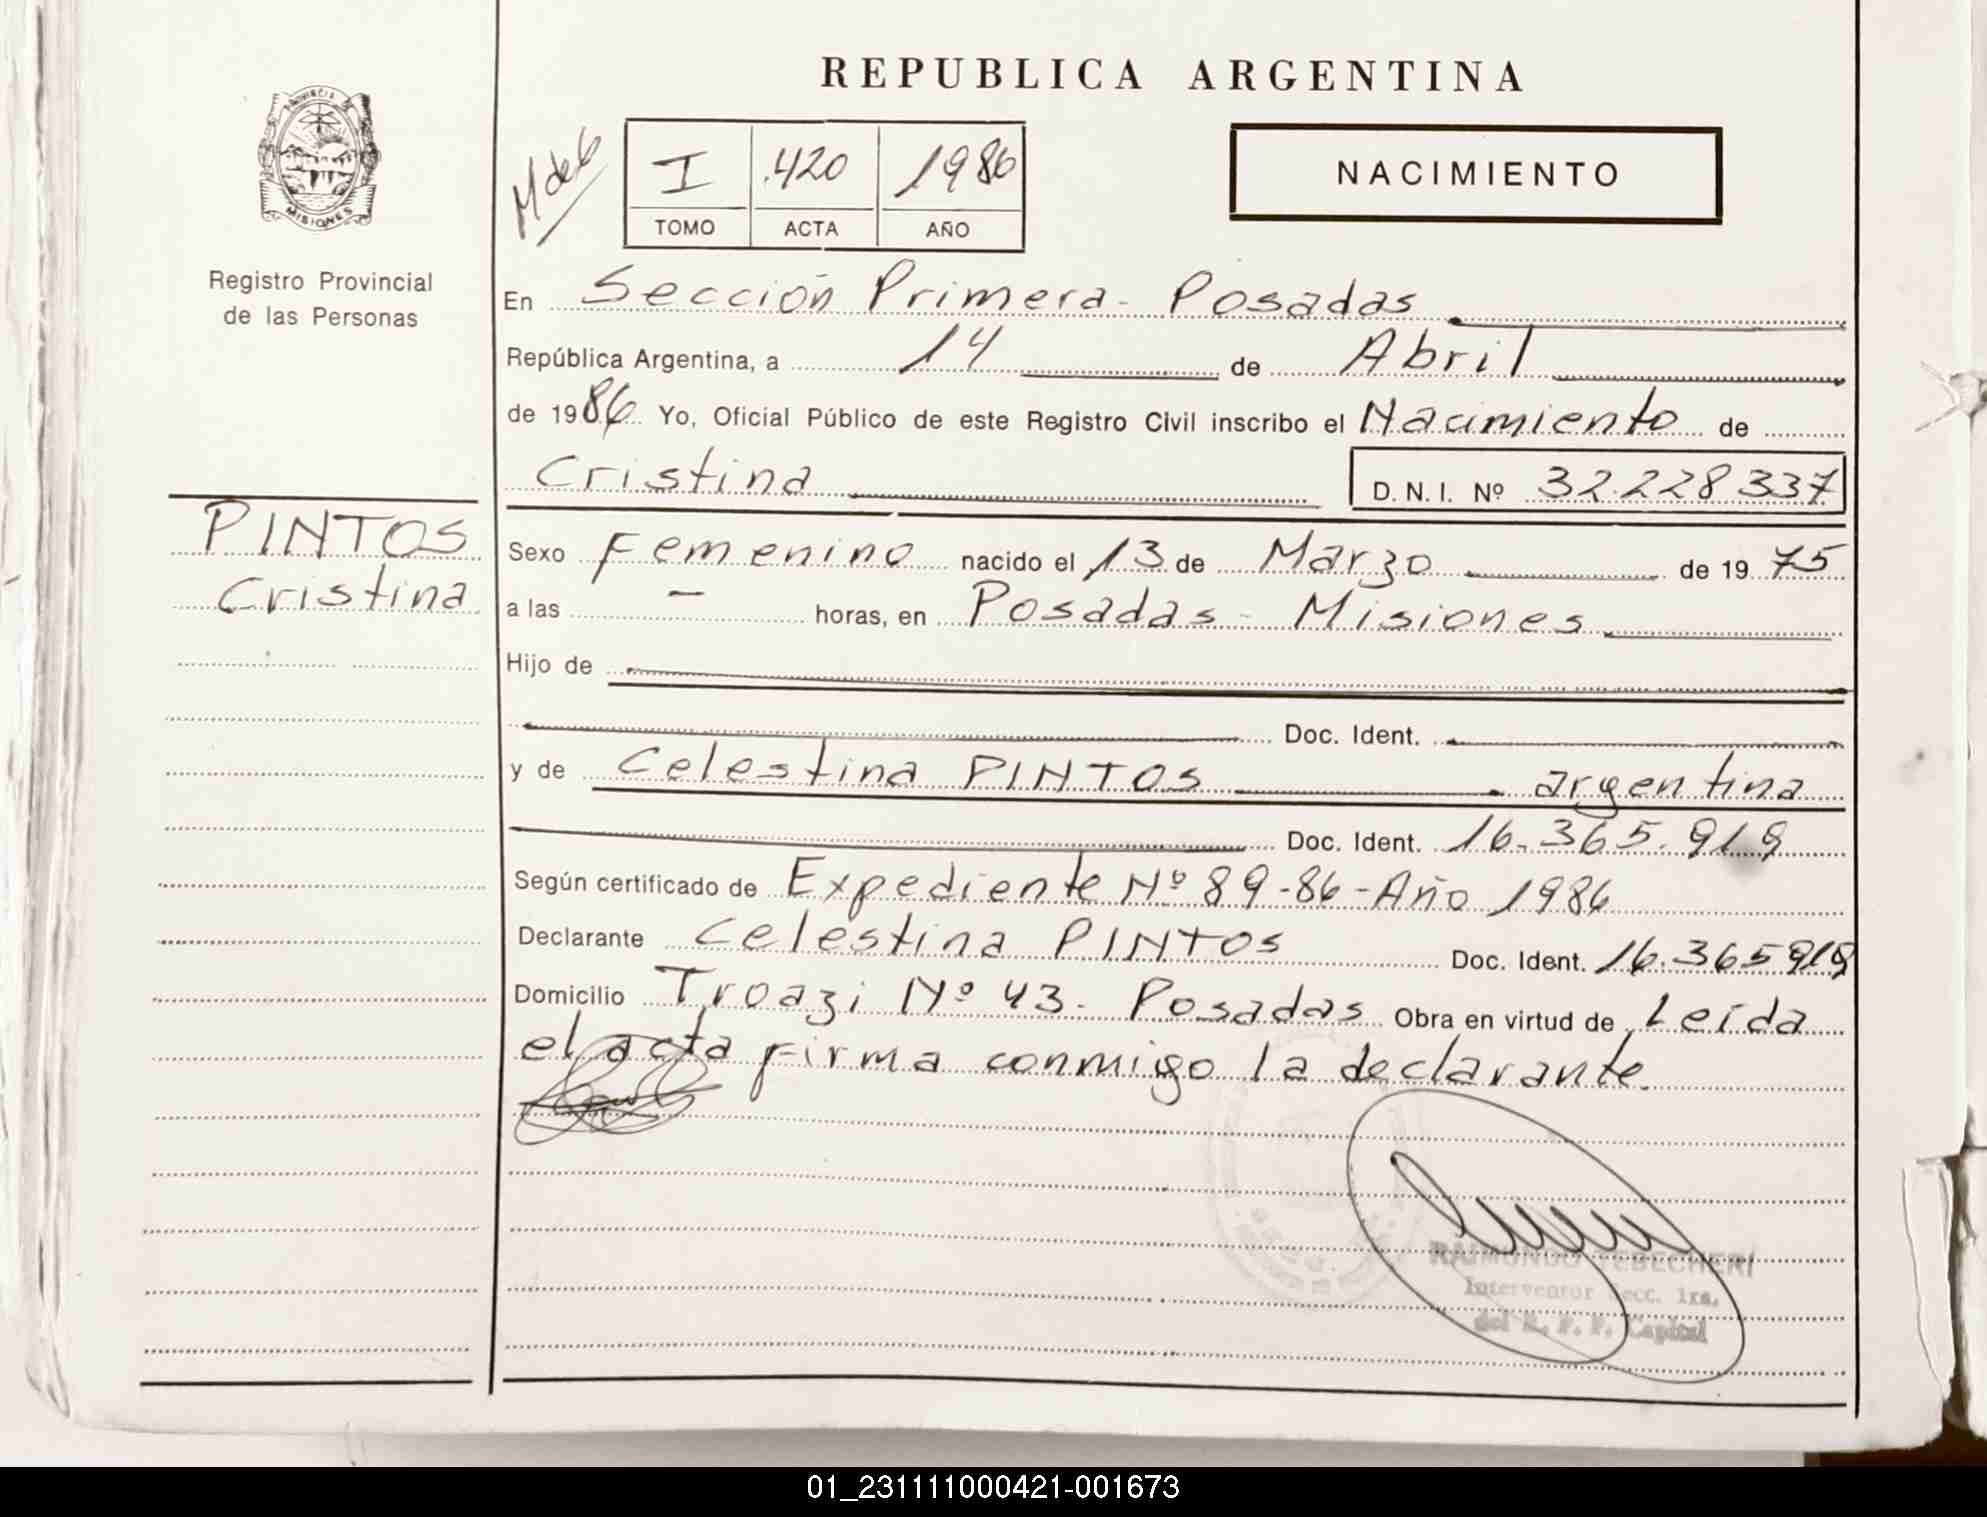 REPUBLICA ARGENTINA
PROVINCIA DE
MISIONES
Registro Provincial
de las Personas
M de 6
I .420 1986
TOMO ACTA AÑO
NACIMIENTO
En Sección Primera - Posadas
República Argentina, a 14 de Abril
de 1986 Yo, Oficial Público de este Registro Civil inscribo el Nacimiento de
Cristina D.N.I. Nº 32.228.337
PINTOS
Cristina
Sexo Femenino nacido el 13 de Marzo de 1975
a las - horas, en Posadas - Misiones
Hijo de
Doc. Ident.
y de Celestina PINTOS argentina
Doc. Ident. 16.365.919
Según certificado de Expediente Nº 89-86-Año 1986
Declarante Celestina PINTOS Doc. Ident. 16.365919
Domicilio Troazi Nº 43. Posadas Obra en virtud de Leída
el acta firma conmigo la declarante.
RAIMUNDO TEBECHERI
Interventor Secc. 1ra.
del R. P. P. Capital
01_231111000421-001673